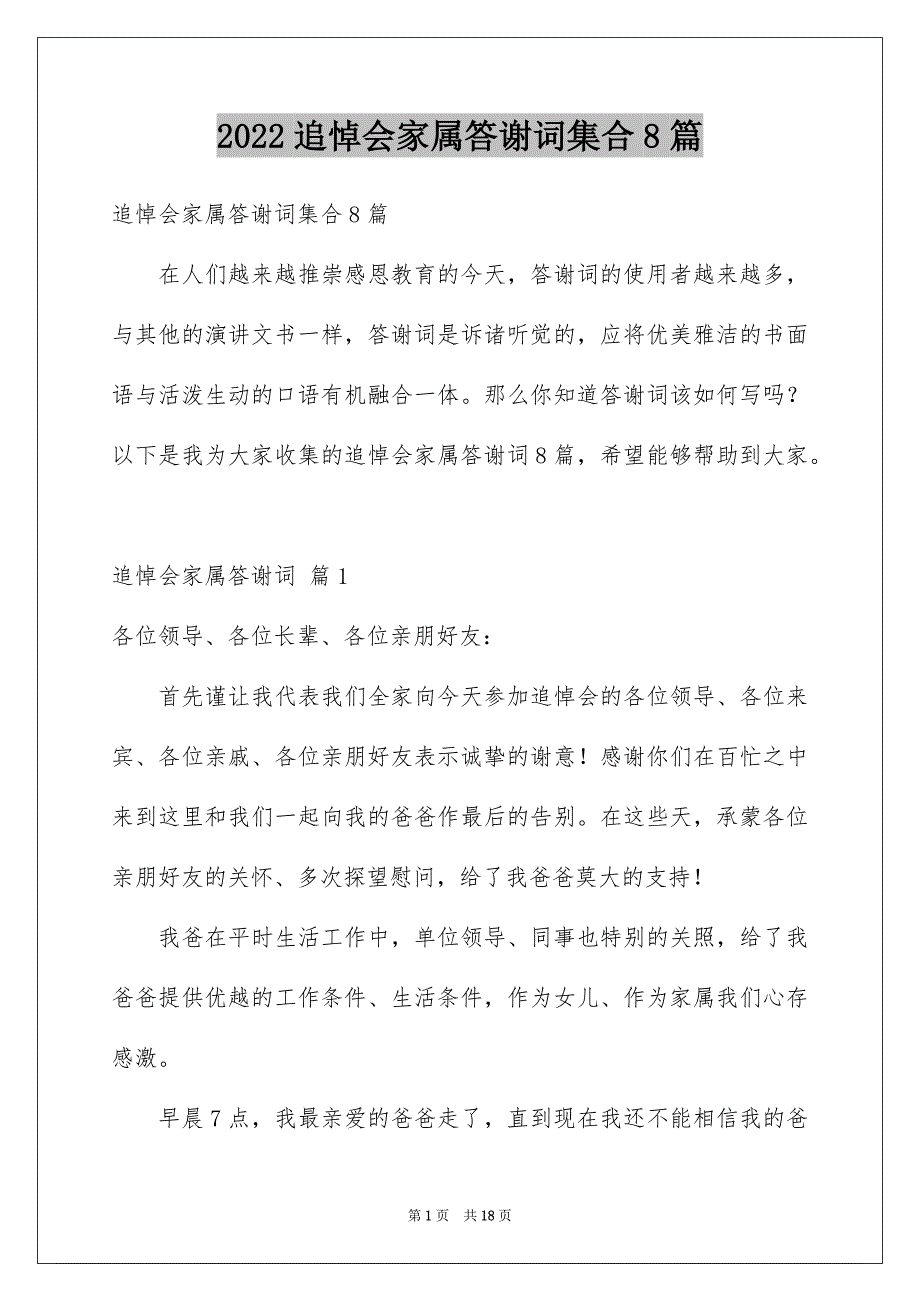 2022追悼会家属答谢词集合8篇
追悼会家属答谢词集合8篇
在人们越来越推崇感恩教育的今天，答谢词的使用者越来越多，
与其他的演讲文书一样，答谢词是诉诸听觉的，应将优美雅洁的书面
语与活泼生动的口语有机融合一体。那么你知道答谢词该如何写吗？
以下是我为大家收集的追悼会家属答谢词8篇，希望能够帮助到大家。
追悼会家属答谢词 篇1
各位领导、各位长辈、各位亲朋好友：
首先谨让我代表我们全家向今天参加追悼会的各位领导、各位来
宾、各位亲戚、各位亲朋好友表示诚挚的谢意！感谢你们在百忙之中
来到这里和我们一起向我的爸爸作最后的告别。在这些天，承蒙各位
亲朋好友的关怀、多次探望慰问，给了我爸爸莫大的支持！
我爸在平时生活工作中，单位领导、同事也特别的关照，给了我
爸爸提供优越的工作条件、生活条件，作为女儿、作为家属我们心存
感激。
早晨7点，我最亲爱的爸爸走了，直到现在我还不能相信我的爸
第1页 共18页